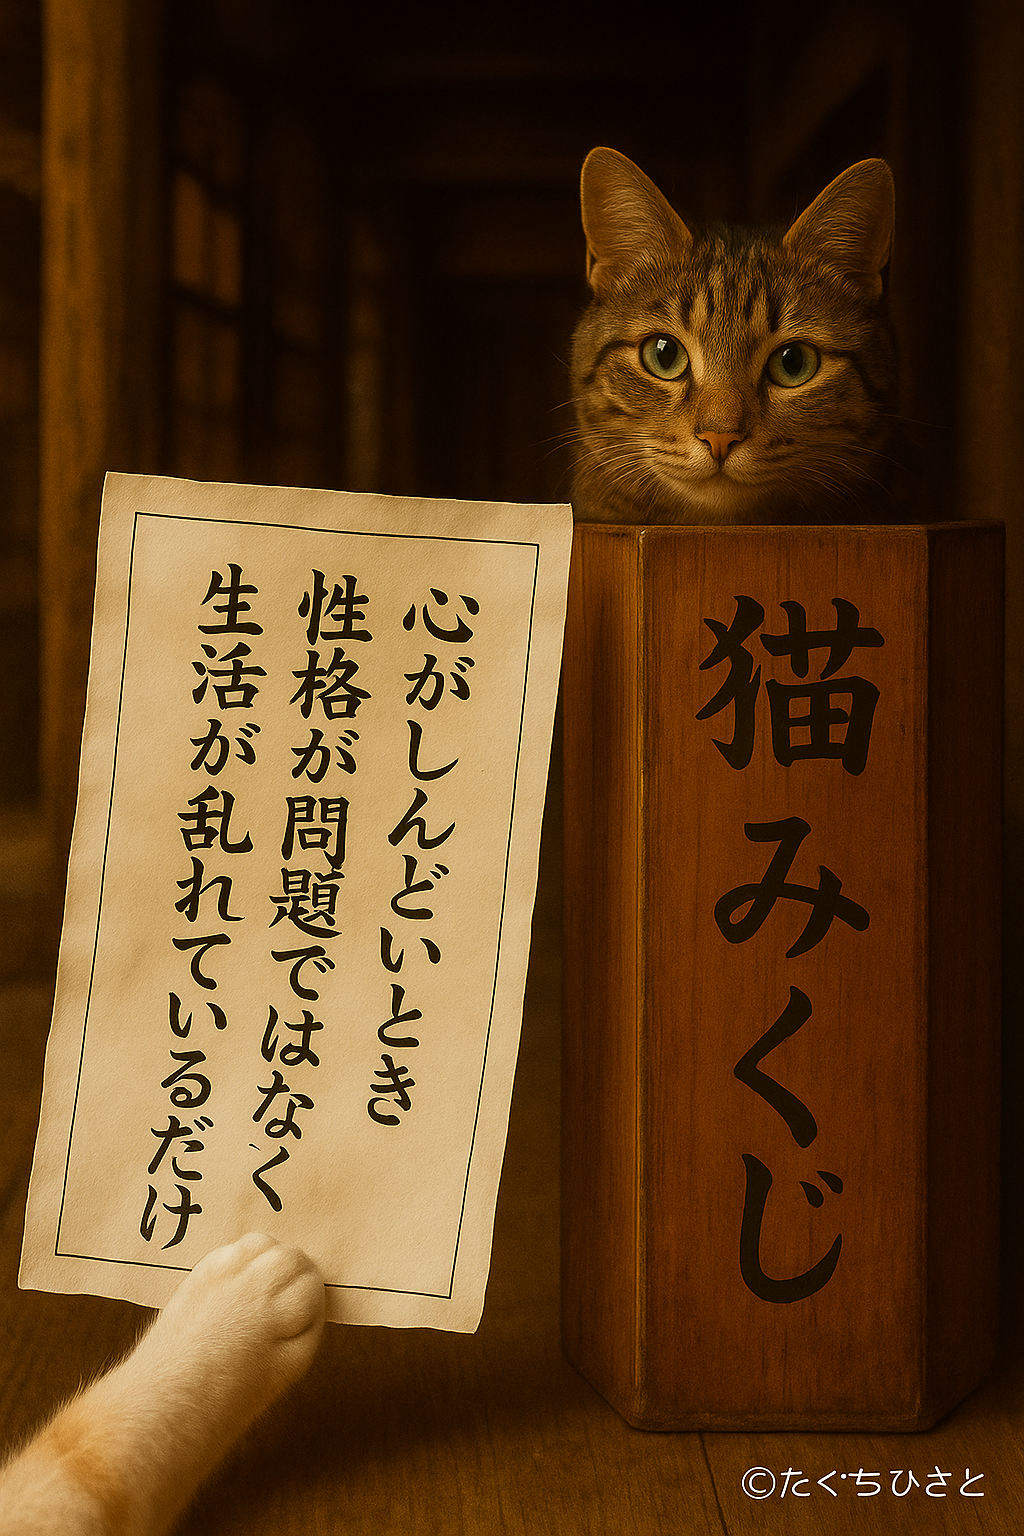 心がしんどいとき
性格が問題ではなく
生活が乱れているだけ
猫みくじ
©たぐちひさと